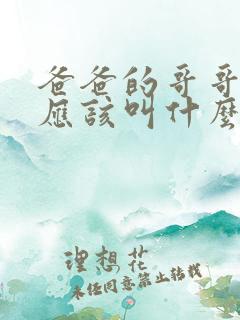 爸爸的哥哥
应该叫什麽
理想花
未经同意禁止转载